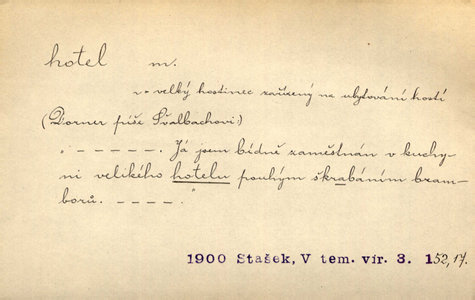 hotel m.
~ = velký hostinec zařízený na ubytování hostí
(Dorner píše Švalbachovi)
„ – – – – – . Já jsem bídně zaměstnán v kuchy-
ni velikého hotelu pouhým škrabáním bram-
borů. – – – – "
1900 Stašek, V tem. vír. 3. 152,17.